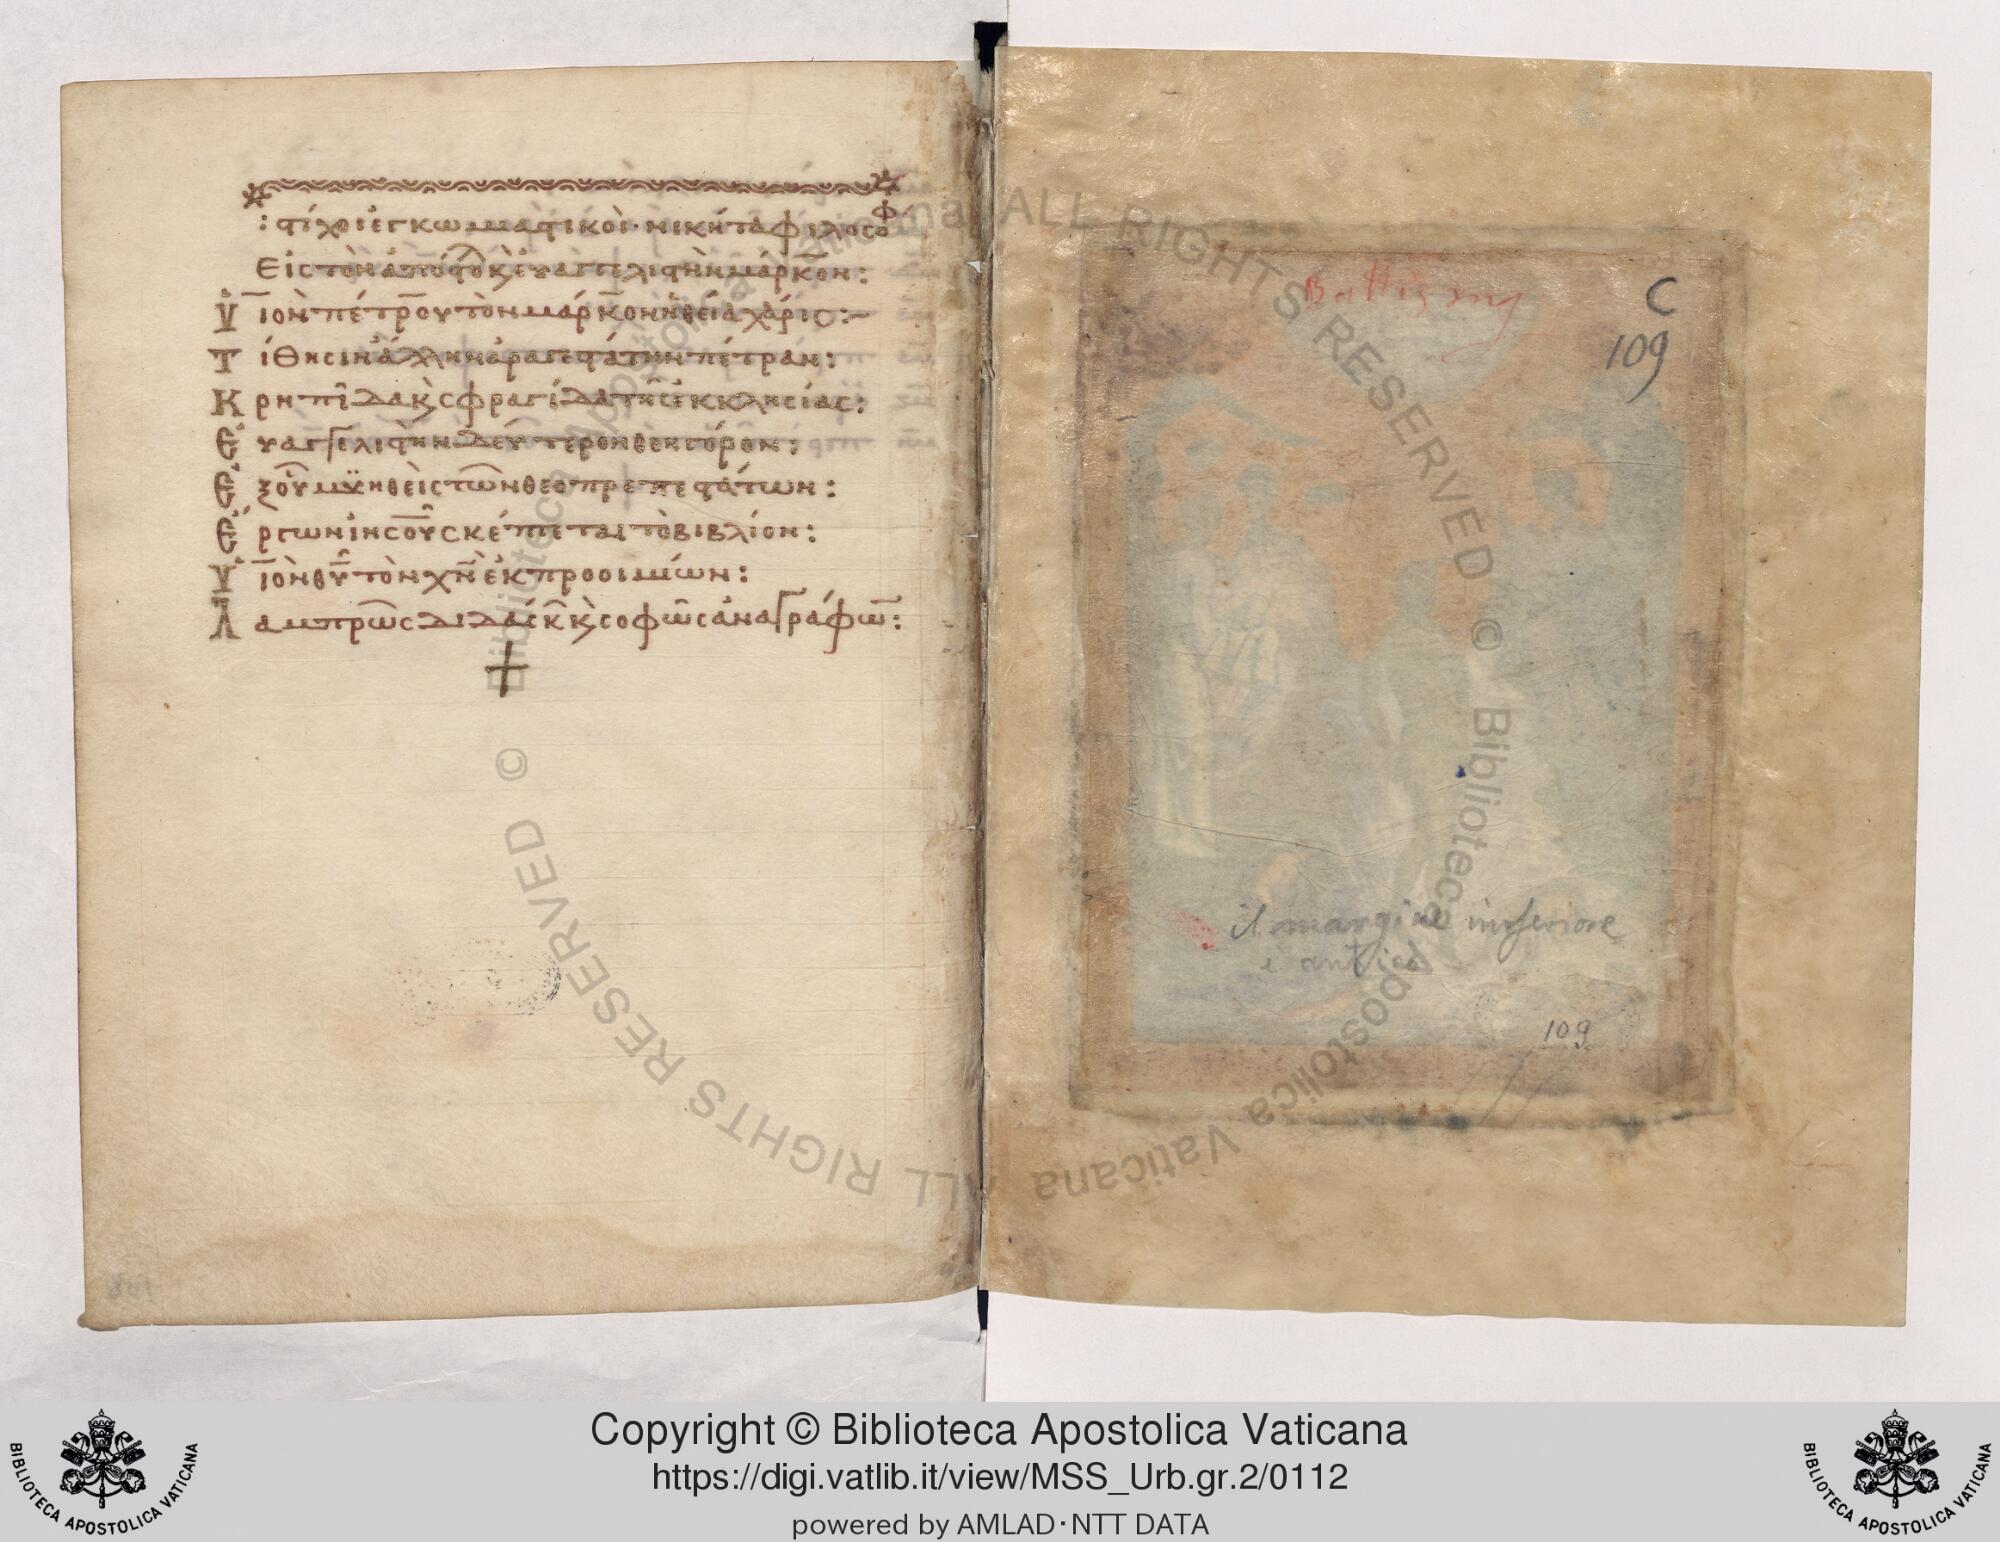 : στίχοι ἐγκωμιαστικοὶ· νικήτα φιλοσόφ
Εἰς τὸν ἀπόστολ κ εὐαγγελιστὴν μάρκον:
Υἱὸν πέτρου τὸν μάρκον ἡ θεία χάρις:
Τίθησιν ἄλλην ἀραγεστάτην πέτραν:
Κρηπῖδα κ σφραγίδα τῆς ἐκκλησίας:
Εὐαγγελιστὴν δεύτερον θεηγόρον:
Ἐξ οὗ μυηθεὶς τῶν θεοπρεπεστάτων:
Ἔργων ἰησοῦ σκέπεται τὸ βιβλίον:
Υἱὸν θυ τὸν χν ἐκ προοιμίων:
Λαμπρῶς διδάσκ κ σοφῶς ἀναγράφων:
+
C
109
il margine inferiore
è antico
109
Copyright © Biblioteca Apostolica Vaticana
https://digi.vatlib.it/view/MSS_Urb.gr.2/0112
powered by AMLAD·NTT DATA
BIBLIOTECA APOSTOLICA VATICANA
BIBLIOTECA APOSTOLICA VATICANA
© Biblioteca Apostolica Vaticana ALL RIGHTS RESERVED © Biblioteca Apostolica Vaticana ALL RIGHTS RESERVED